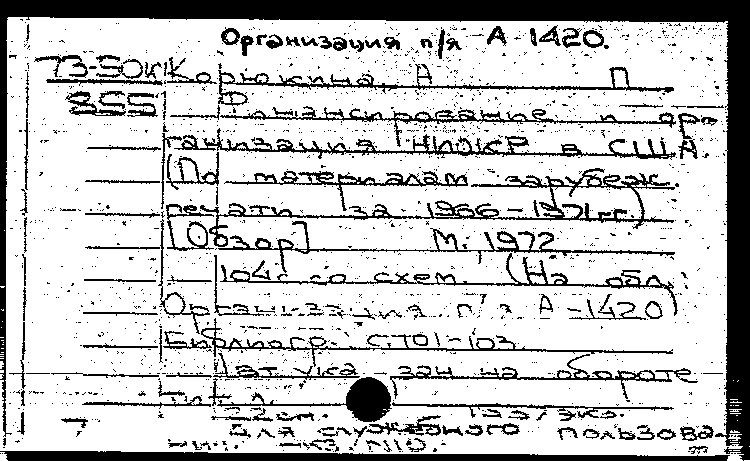 Организация п/я А-1420.
73-50кк Корюкина, А П
855 Финансирование и ор-
ганизация НИОКР в США.
(По материалам зарубеж.
печати за 1966-1971гг.)
[Обзор] М., 1972
104с. со схем. (На обл.:
Организация п/я А-1420)
Библиогр. с.101-103
Авт указан на обороте
тит. л.
22см. экз.
Для служебного пользова-